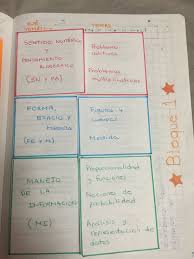 EJE
TEMÁTICO
TEMAS
SENTIDO NUMÉRICO
Y
PENSAMIENTO
ALGEBRAICO
(SN y PA)
Problemas
aditivos
Problemas
multiplicativos
FORMA,
ESPACIO Y
MEDIDA
(FE y M)
Figuras y
cuerpos
Medida
MANEJO
DE LA
INFORMACIÓN
(MI)
Proporcionalidad
y funciones
Nociones de
probabilidad
Análisis y
representación de
datos
Bloque 1